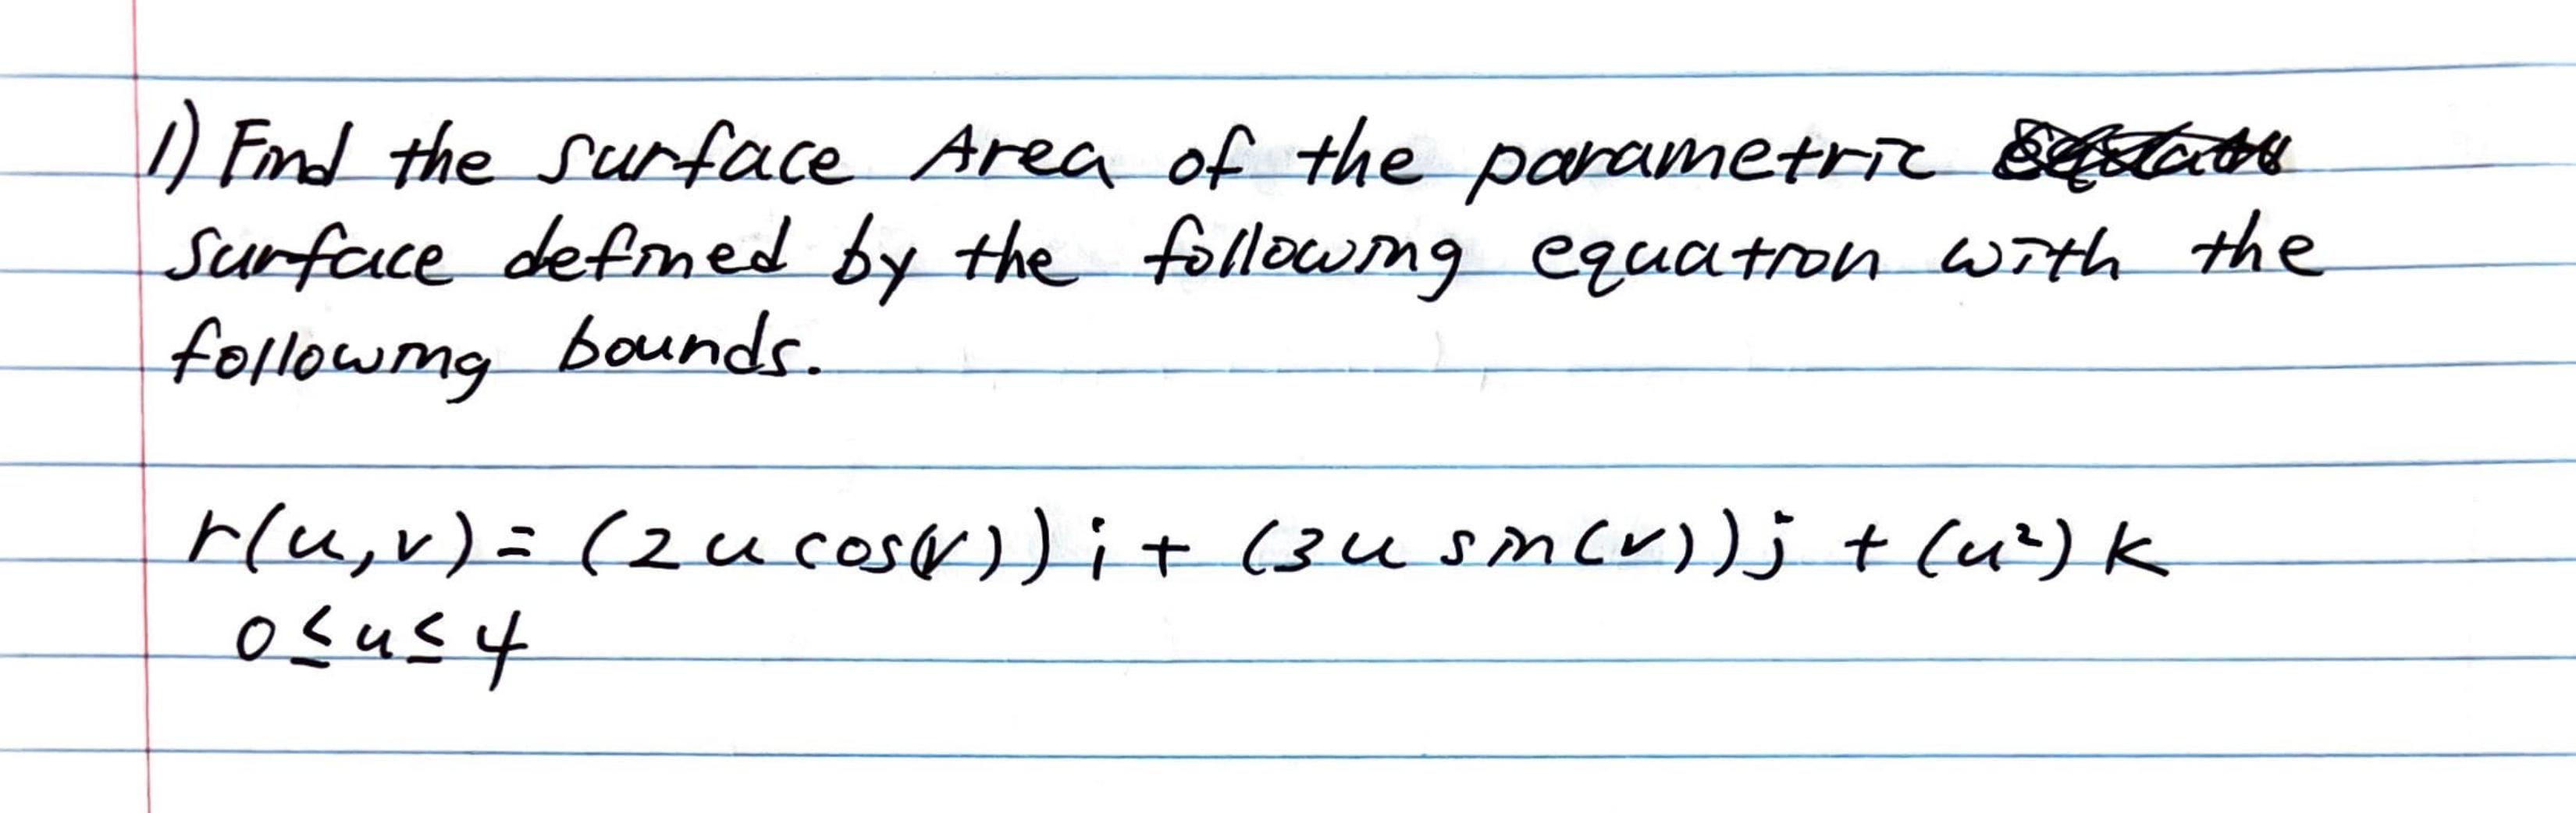 1) Find the surface Area of the parametric
surface defined by the following equation with the
following bounds.
r(u,v) = (2u cos(v)) i + (3u sin(v)) j + (u²) k
0 ≤ u ≤ 4